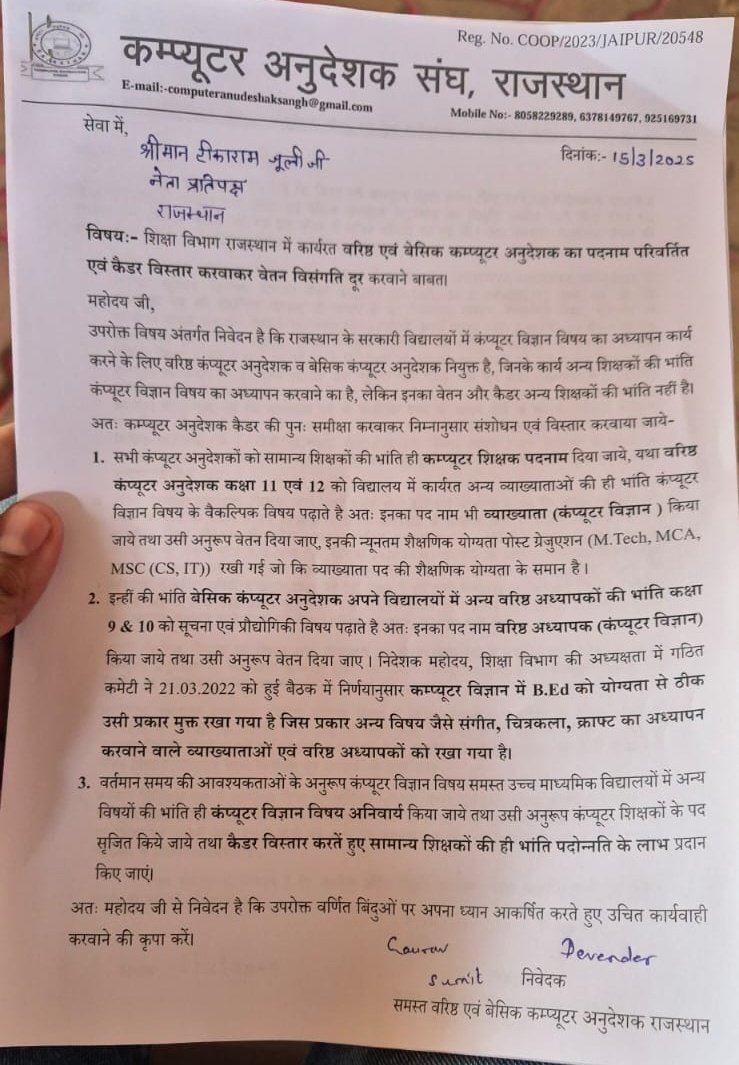 Reg. No. COOP/2023/JAIPUR/20548
कम्प्यूटर अनुदेशक संघ, राजस्थान
E-mail:-computeranudeshaksangh@gmail.com
Mobile No:- 8058229289, 6378149767, 925169731
सेवा में,
दिनांक:- 15/3/2025
श्रीमान टीकाराम जूली जी
नेता प्रतिपक्ष
राजस्थान
विषय:- शिक्षा विभाग राजस्थान में कार्यरत वरिष्ठ एवं बेसिक कम्प्यूटर अनुदेशक का पदनाम परिवर्तित
एवं कैडर विस्तार करवाकर वेतन विसंगति दूर करवाने बाबत।
महोदय जी,
उपरोक्त विषय अंतर्गत निवेदन है कि राजस्थान के सरकारी विद्यालयों में कंप्यूटर विज्ञान विषय का अध्यापन कार्य
करने के लिए वरिष्ठ कंप्यूटर अनुदेशक व बेसिक कंप्यूटर अनुदेशक नियुक्त है, जिनके कार्य अन्य शिक्षकों की भांति
कंप्यूटर विज्ञान विषय का अध्यापन करवाने का है, लेकिन इनका वेतन और कैडर अन्य शिक्षकों की भांति नहीं है।
अतः कम्प्यूटर अनुदेशक कैडर की पुनः समीक्षा करवाकर निम्नानुसार संशोधन एवं विस्तार करवाया जाये-
1. सभी कंप्यूटर अनुदेशकों को सामान्य शिक्षकों की भांति ही कम्प्यूटर शिक्षक पदनाम दिया जाये, यथा वरिष्ठ
कंप्यूटर अनुदेशक कक्षा 11 एवं 12 को विद्यालय में कार्यरत अन्य व्याख्याताओं की ही भांति कंप्यूटर
विज्ञान विषय के वैकल्पिक विषय पढ़ाते है अतः इनका पद नाम भी व्याख्याता (कंप्यूटर विज्ञान ) किया
जाये तथा उसी अनुरूप वेतन दिया जाए, इनकी न्यूनतम शैक्षणिक योग्यता पोस्ट ग्रेजुएशन (M.Tech, MCA,
MSC (CS, IT)) रखी गई जो कि व्याख्याता पद की शैक्षणिक योग्यता के समान है ।
2. इन्हीं की भांति बेसिक कंप्यूटर अनुदेशक अपने विद्यालयों में अन्य वरिष्ठ अध्यापकों की भांति कक्षा
9 & 10 को सूचना एवं प्रौद्योगिकी विषय पढ़ाते है अतः इनका पद नाम वरिष्ठ अध्यापक (कंप्यूटर विज्ञान)
किया जाये तथा उसी अनुरूप वेतन दिया जाए । निदेशक महोदय, शिक्षा विभाग की अध्यक्षता में गठित
कमेटी ने 21.03.2022 को हुई बैठक में निर्णयानुसार कम्प्यूटर विज्ञान में B.Ed को योग्यता से ठीक
उसी प्रकार मुक्त रखा गया है जिस प्रकार अन्य विषय जैसे संगीत, चित्रकला, क्राफ्ट का अध्यापन
करवाने वाले व्याख्याताओं एवं वरिष्ठ अध्यापकों को रखा गया है।
3. वर्तमान समय की आवश्यकताओं के अनुरूप कंप्यूटर विज्ञान विषय समस्त उच्च माध्यमिक विद्यालयों में अन्य
विषयों की भांति ही कंप्यूटर विज्ञान विषय अनिवार्य किया जाये तथा उसी अनुरूप कंप्यूटर शिक्षकों के पद
सृजित किये जाये तथा कैडर विस्तार करतें हुए सामान्य शिक्षकों की ही भांति पदोन्नति के लाभ प्रदान
किए जाएं।
अतः महोदय जी से निवेदन है कि उपरोक्त वर्णित बिंदुओं पर अपना ध्यान आकर्षित करते हुए उचित कार्यवाही
करवाने की कृपा करें।
Gaurav Devender
Sumit निवेदक
समस्त वरिष्ठ एवं बेसिक कम्प्यूटर अनुदेशक राजस्थान